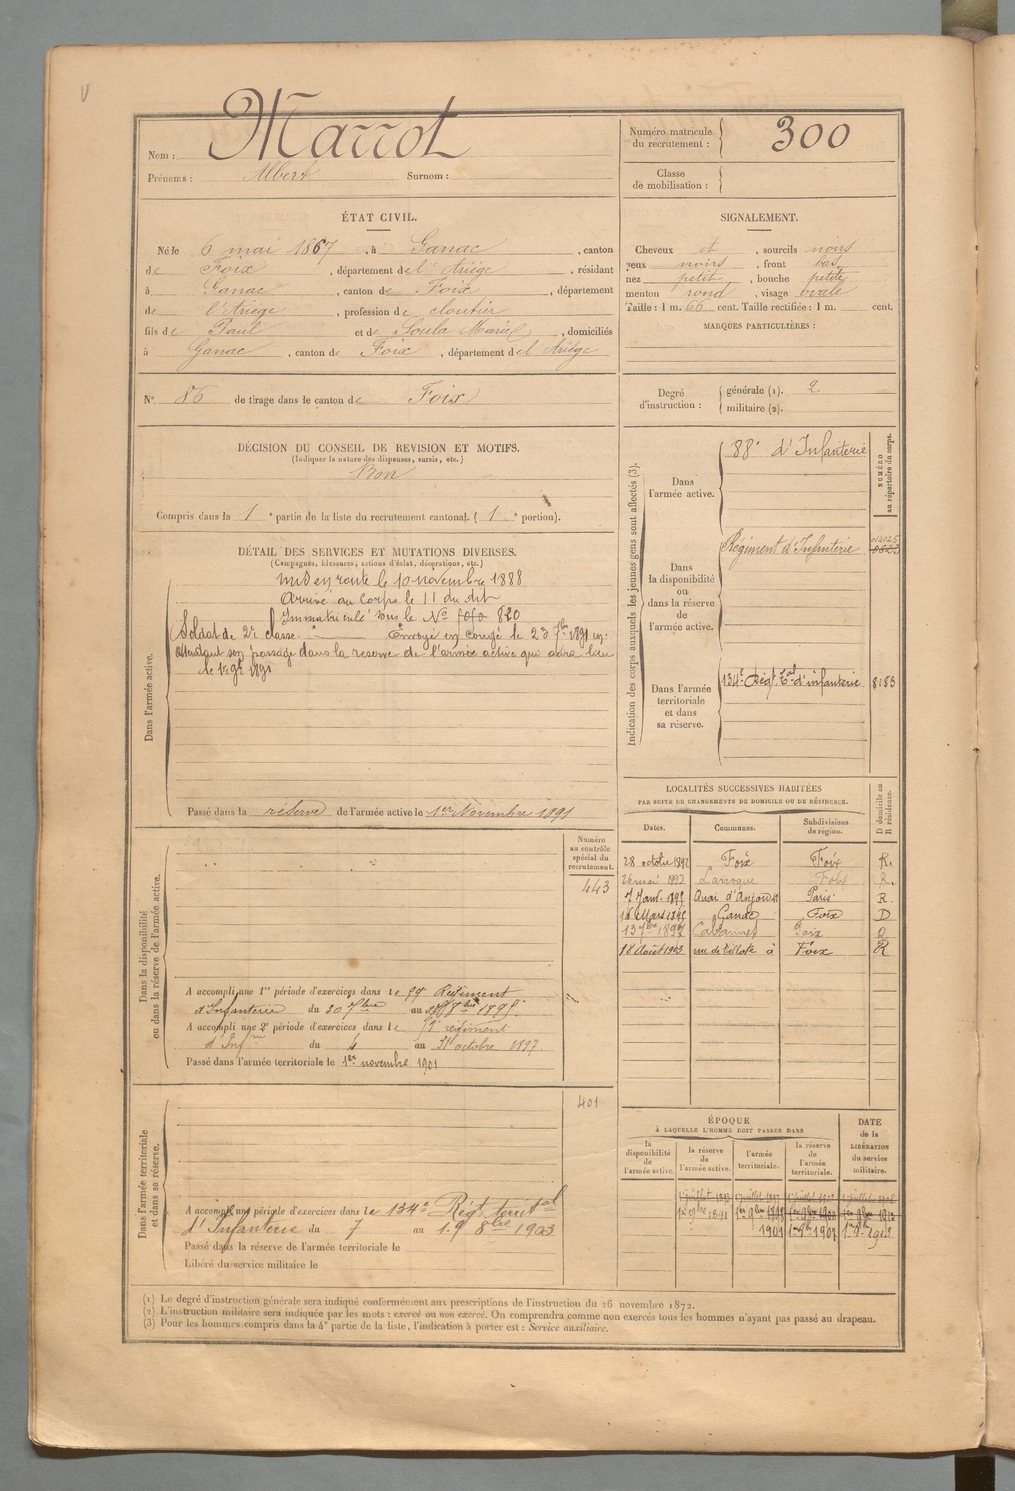 Nom : Marrot
Prénoms : Albert Surnom :
Numéro matricule du recrutement : 300
Classe de mobilisation :
ÉTAT CIVIL.
Né le 6 mai 1867, à Ganac, canton
de Foix, département de l'Ariège, résidant
à Ganac, canton de Foix, département
de l'Ariège, profession de cloutier
fils de Paul et de Soula Marie, domiciliés
à Ganac, canton de Foix, département de l'Ariège
SIGNALEMENT.
Cheveux et, sourcils noirs
yeux noirs, front bas
nez petit, bouche petite
menton rond, visage ovale
Taille : 1 m. 66 cent. Taille rectifiée : 1 m. cent.
MARQUES PARTICULIÈRES :
N° 86 de tirage dans le canton de Foix
Degré d'instruction : générale (1). 2
militaire (2).
DÉCISION DU CONSEIL DE REVISION ET MOTIFS.
(Indiquer la nature des dispenses, sursis, etc.)
Bon
Compris dans la 1e partie de la liste du recrutement cantonal. (1e portion).
DÉTAIL DES SERVICES ET MUTATIONS DIVERSES.
(Campagnes, blessures, actions d'éclat, décorations, etc.)
Dans l'armée active.
Mis en route le 10 novembre 1888
Arrivé au corps le 11 du dit
Immatriculé sous le N° 820
Soldat de 2e classe. Envoyé en congé le 23 7bre 1891 en
attendant son passage dans la reserve de l'armée active qui aura lieu
le 1er 9bre 1891
Passé dans la réserve de l'armée active le 1er Novembre 1891
Indication des corps auxquels les jeunes gens sont affectés (3).
NUMÉRO au répertoire du corps.
Dans l'armée active.
88e d'Infanterie
Dans la disponibilité ou dans la réserve de l'armée active.
Régiment d'Infanterie
Dans l'armée territoriale et dans sa réserve.
134e Régt Tal d'infanterie 8183
LOCALITÉS SUCCESSIVES HABITÉES
PAR SUITE DE CHANGEMENTS DE DOMICILE OU DE RÉSIDENCE.
Dates. Communes. Subdivisions de région. D domicile ou R résidence.
28 octobre 1892 Foix Foix R.
26 mai 1893 Larroque Foix R.
7 Janv. 1895 Quai d'Anjou Paris R
16 Mars 1895 Ganac Foix D
Foix
18 Août 1903 à Foix R
Dans la disponibilité ou dans la réserve de l'armée active.
Numéro au contrôle spécial du recrutement.
443
A accompli une 1re période d'exercices dans le 59e Régiment
d'Infanterie du 30 7bre au 8bre 1895.
A accompli une 2e période d'exercices dans le régiment
d'Infrie du 4 au 31 octobre 1897
Passé dans l'armée territoriale le 1er novembre 1901
Dans l'armée territoriale et dans sa réserve.
401
A accompli une période d'exercices dans le 134e Régt territal
d'Infanterie du 7 au 19 8bre 1903
Passé dans la réserve de l'armée territoriale le
Libéré du service militaire le
ÉPOQUE
À LAQUELLE L'HOMME DOIT PASSER DANS
la disponibilité de l'armée active. la réserve de l'armée active. l'armée territoriale. la réserve de l'armée territoriale. DATE de la LIBÉRATION du service militaire.
1er 9bre 1891
1901 1907 1913
(1) Le degré d'instruction générale sera indiqué conformément aux prescriptions de l'instruction du 26 novembre 1872.
(2) L'instruction militaire sera indiquée par les mots : exercé ou non exercé. On comprendra comme non exercés tous les hommes n'ayant pas passé au drapeau.
(3) Pour les hommes compris dans la 4e partie de la liste, l'indication à porter est : Service auxiliaire.